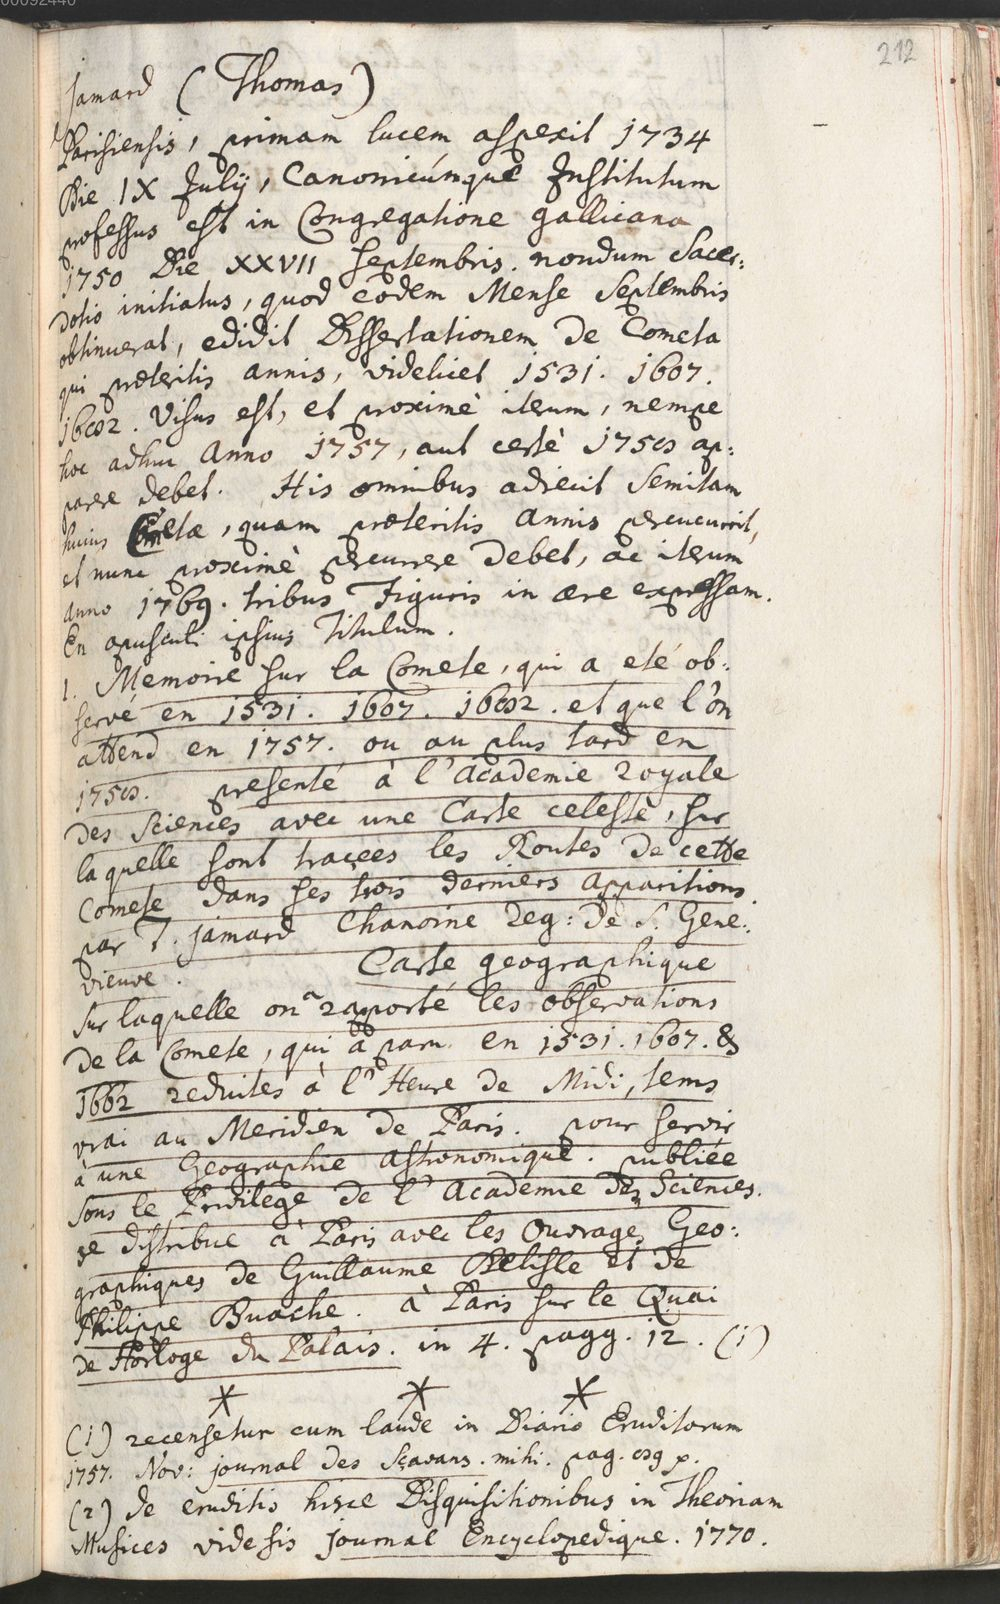 00092440
212
Jamard (Thomas)
Parisiensis, primam lucem aspexit 1734
Die IX July, Canonicúmque Institutum
professus est in Congregatione gallicana
1750 Die XXVII Septembris. nondum Sacer:
dotio initiatus, quod eodem Mense Septembris
obtinuerat, edidit Dissertationem de Cometa
qui præteritis annis, videlicet 1531. 1607.
1682. visus est, et proximè iterum, nempe
hoc adhuc Anno 1757, aut certè 1758 ap:
parere debet. His omnibus adjecit Semitam
huius Cometæ, quam præteritis Annis percucurrit,
et nunc proximè percurrere debet, ac iterum
anno 1769. tribus Figuris in ære expressam.
En opusculi ipsius Titulum.
1. Memoire sur la Comete, qui a eté ob:
servé en 1531. 1607. 1682. et que l'on
attend en 1757. ou au plus tard en
1758. presenté à l'Academie Royale
des Sciences avec une Carte celeste, sur
laquelle sont tracées les Routes de cette
Comete dans ses trois derniers Apparitions.
par T. jamard Chanoine Reg: de S. Gene:
vieuve. Carte geographique
sur laquelle on a raporté les observations
de la Comete, qui à paru en 1531. 1607. &
1662 reduites à l'Heure de Midi, tems
vrai au Meridien de Paris. pour servir
à une Geographie astronomique. publiée
sous le Privilege de l'Academie des Sciences.
se distribue à Paris avec les Ouvrages Geo:
graphiques de Guillaume Delisle et de
Philippe Buache. à Paris sur le Quai
de Horloge du Palais. in 4. pagg. 12. (1)
* * *
(1) recensetur cum laude in Diario Eruditorum
1757. Nov: journal des Sçavans. mihi. pag.
(2) de eruditis hisce Disquisitionibus in Theoriam
Musices videsis journal Encyclopedique. 1770.